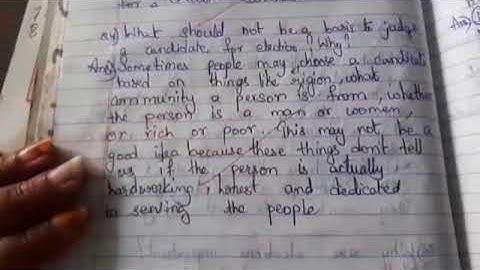 for a
Q4) What should not be a basis to judge
a candidate for election? Why?
Ans) Sometimes people may choose a candidate
based on things like religion, what
community a person is from, whether
the person is a man or women,
or rich or poor. This may not be a
good idea because these things don't tell
us if the person is actually
hardworking, honest and dedicated
to serving the people